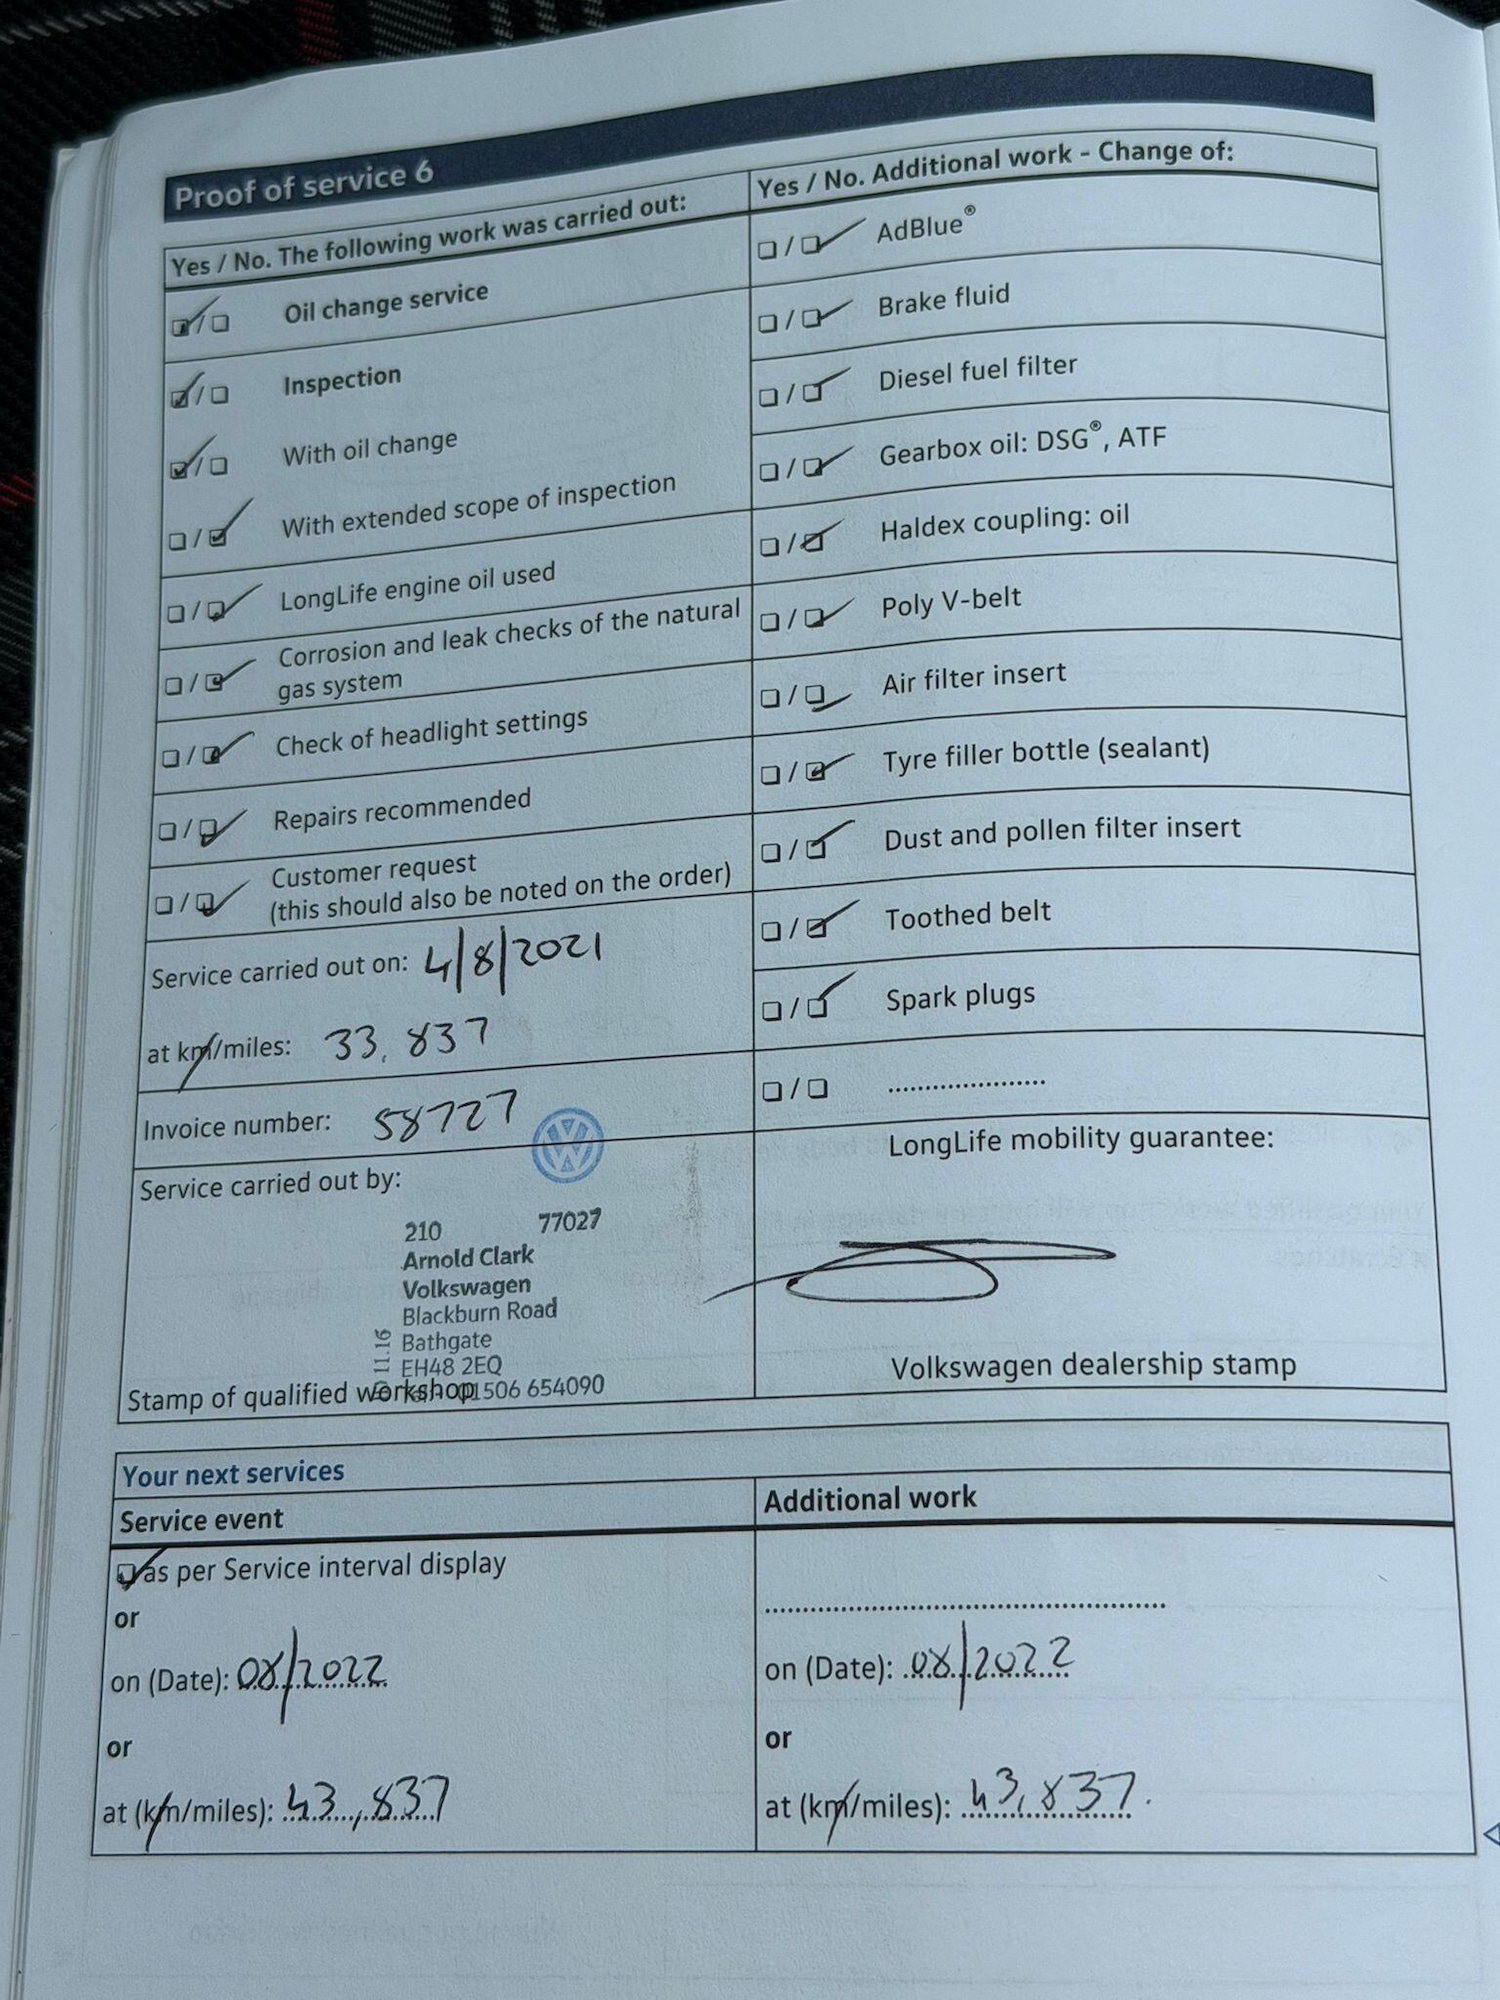 Proof of service 6
Yes / No. The following work was carried out:
Oil change service
Inspection
With oil change
With extended scope of inspection
LongLife engine oil used
Corrosion and leak checks of the natural
gas system
Check of headlight settings
Repairs recommended
Customer request
(this should also be noted on the order)
Service carried out on: 4/8/2021
at km/miles: 33,837
Invoice number: 58727
Service carried out by:
210 77027
Arnold Clark
Volkswagen
Blackburn Road
Bathgate
EH48 2EQ
01506 654090
11.16
Stamp of qualified workshop
Yes / No. Additional work - Change of:
AdBlue®
Brake fluid
Diesel fuel filter
Gearbox oil: DSG®, ATF
Haldex coupling: oil
Poly V-belt
Air filter insert
Tyre filler bottle (sealant)
Dust and pollen filter insert
Toothed belt
Spark plugs
.....................
LongLife mobility guarantee:
Volkswagen dealership stamp
Your next services
Service event
as per Service interval display
or
on (Date): 08/2022
or
at (km/miles): 43,837
Additional work
on (Date): 08/2022
or
at (km/miles): 43,837.